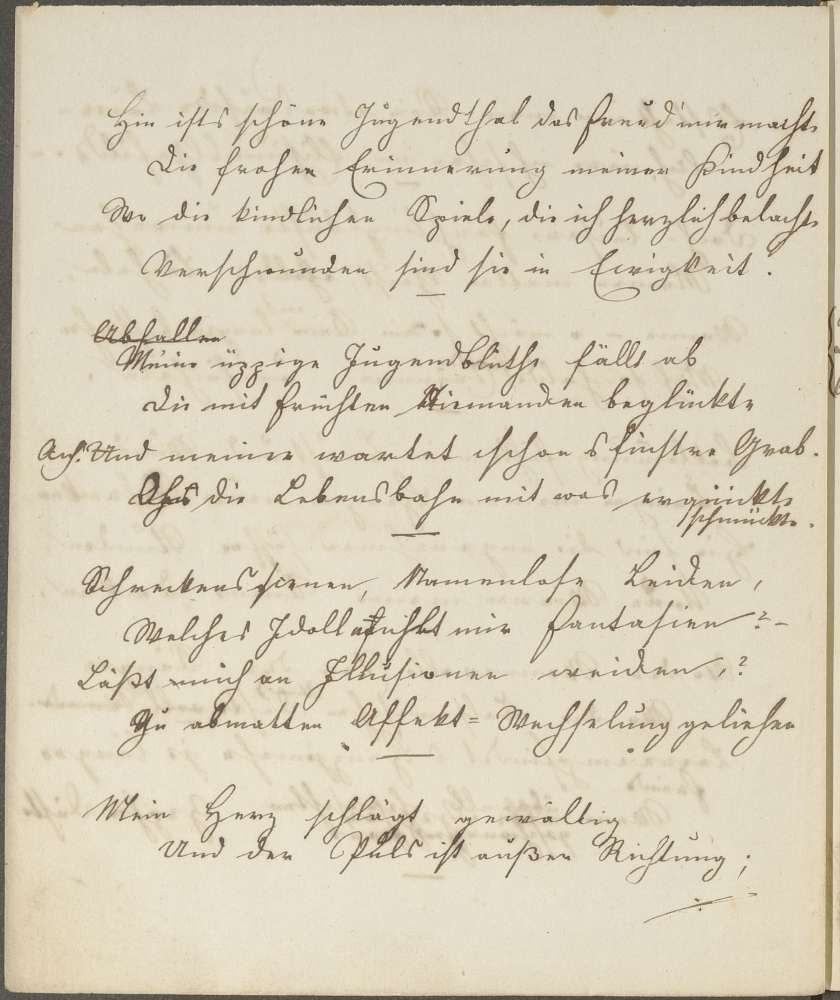 Hin ists schöne Jugendthal das Freud' mir machte
Die frohen Erinnerung meiner Kindheit
Wo die kindlichen Spiele, die ich herzlich belachte
Verschwunden sind sie in Ewigkeit.
Abfallen
Meine üppige Jugendblüthe fällt ab
Die mit Früchten Niemanden beglückte
Ach! Und meiner wartet schon s finstre Grab.
Ohs die Lebensbahn mit was erquickte
schmückte.
Schreckensscenen, Namenlose Leiden,
Welches Idoll führt mir Fantasien? –
Läßt mich an Illusionen weiden,?
Zu abmatten Affekt=Wechselung geliehen
Mein Herz schlägt gewältig
Und der Puls ist außer Richtung;